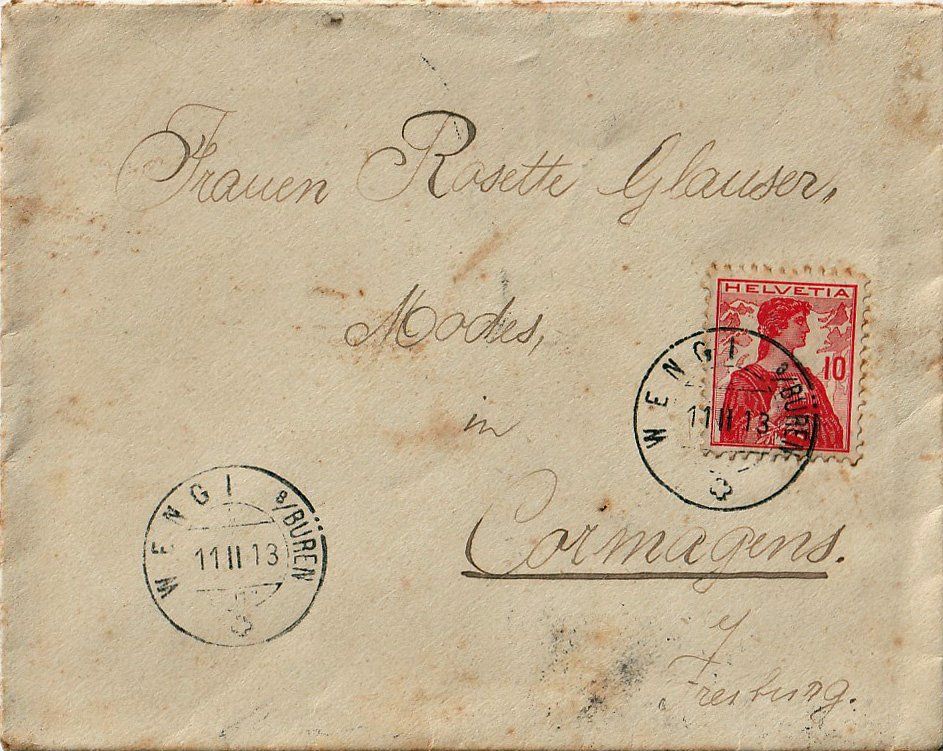 Frauen Rosette Glauser,
Modes,
in
Cormagens.
Freiburg.
HELVETIA
10
WENGI B/BÜREN
11 II 13
WENGI B/BÜREN
11 II 13